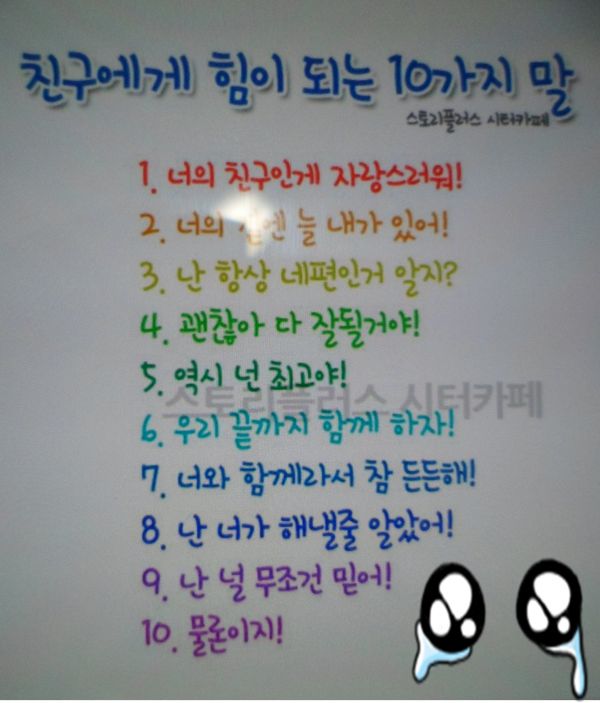 친구에게 힘이 되는 10가지 말
스토리플러스 시터카페
1. 너의 친구인게 자랑스러워!
2. 너의 곁엔 늘 내가 있어!
3. 난 항상 네편인거 알지?
4. 괜찮아 다 잘될거야!
5. 역시 넌 최고야!
스토리플러스 시터카페
6. 우리 끝까지 함께 하자!
7. 너와 함께라서 참 든든해!
8. 난 너가 해낼줄 알았어!
9. 난 널 무조건 믿어!
10. 물론이지!